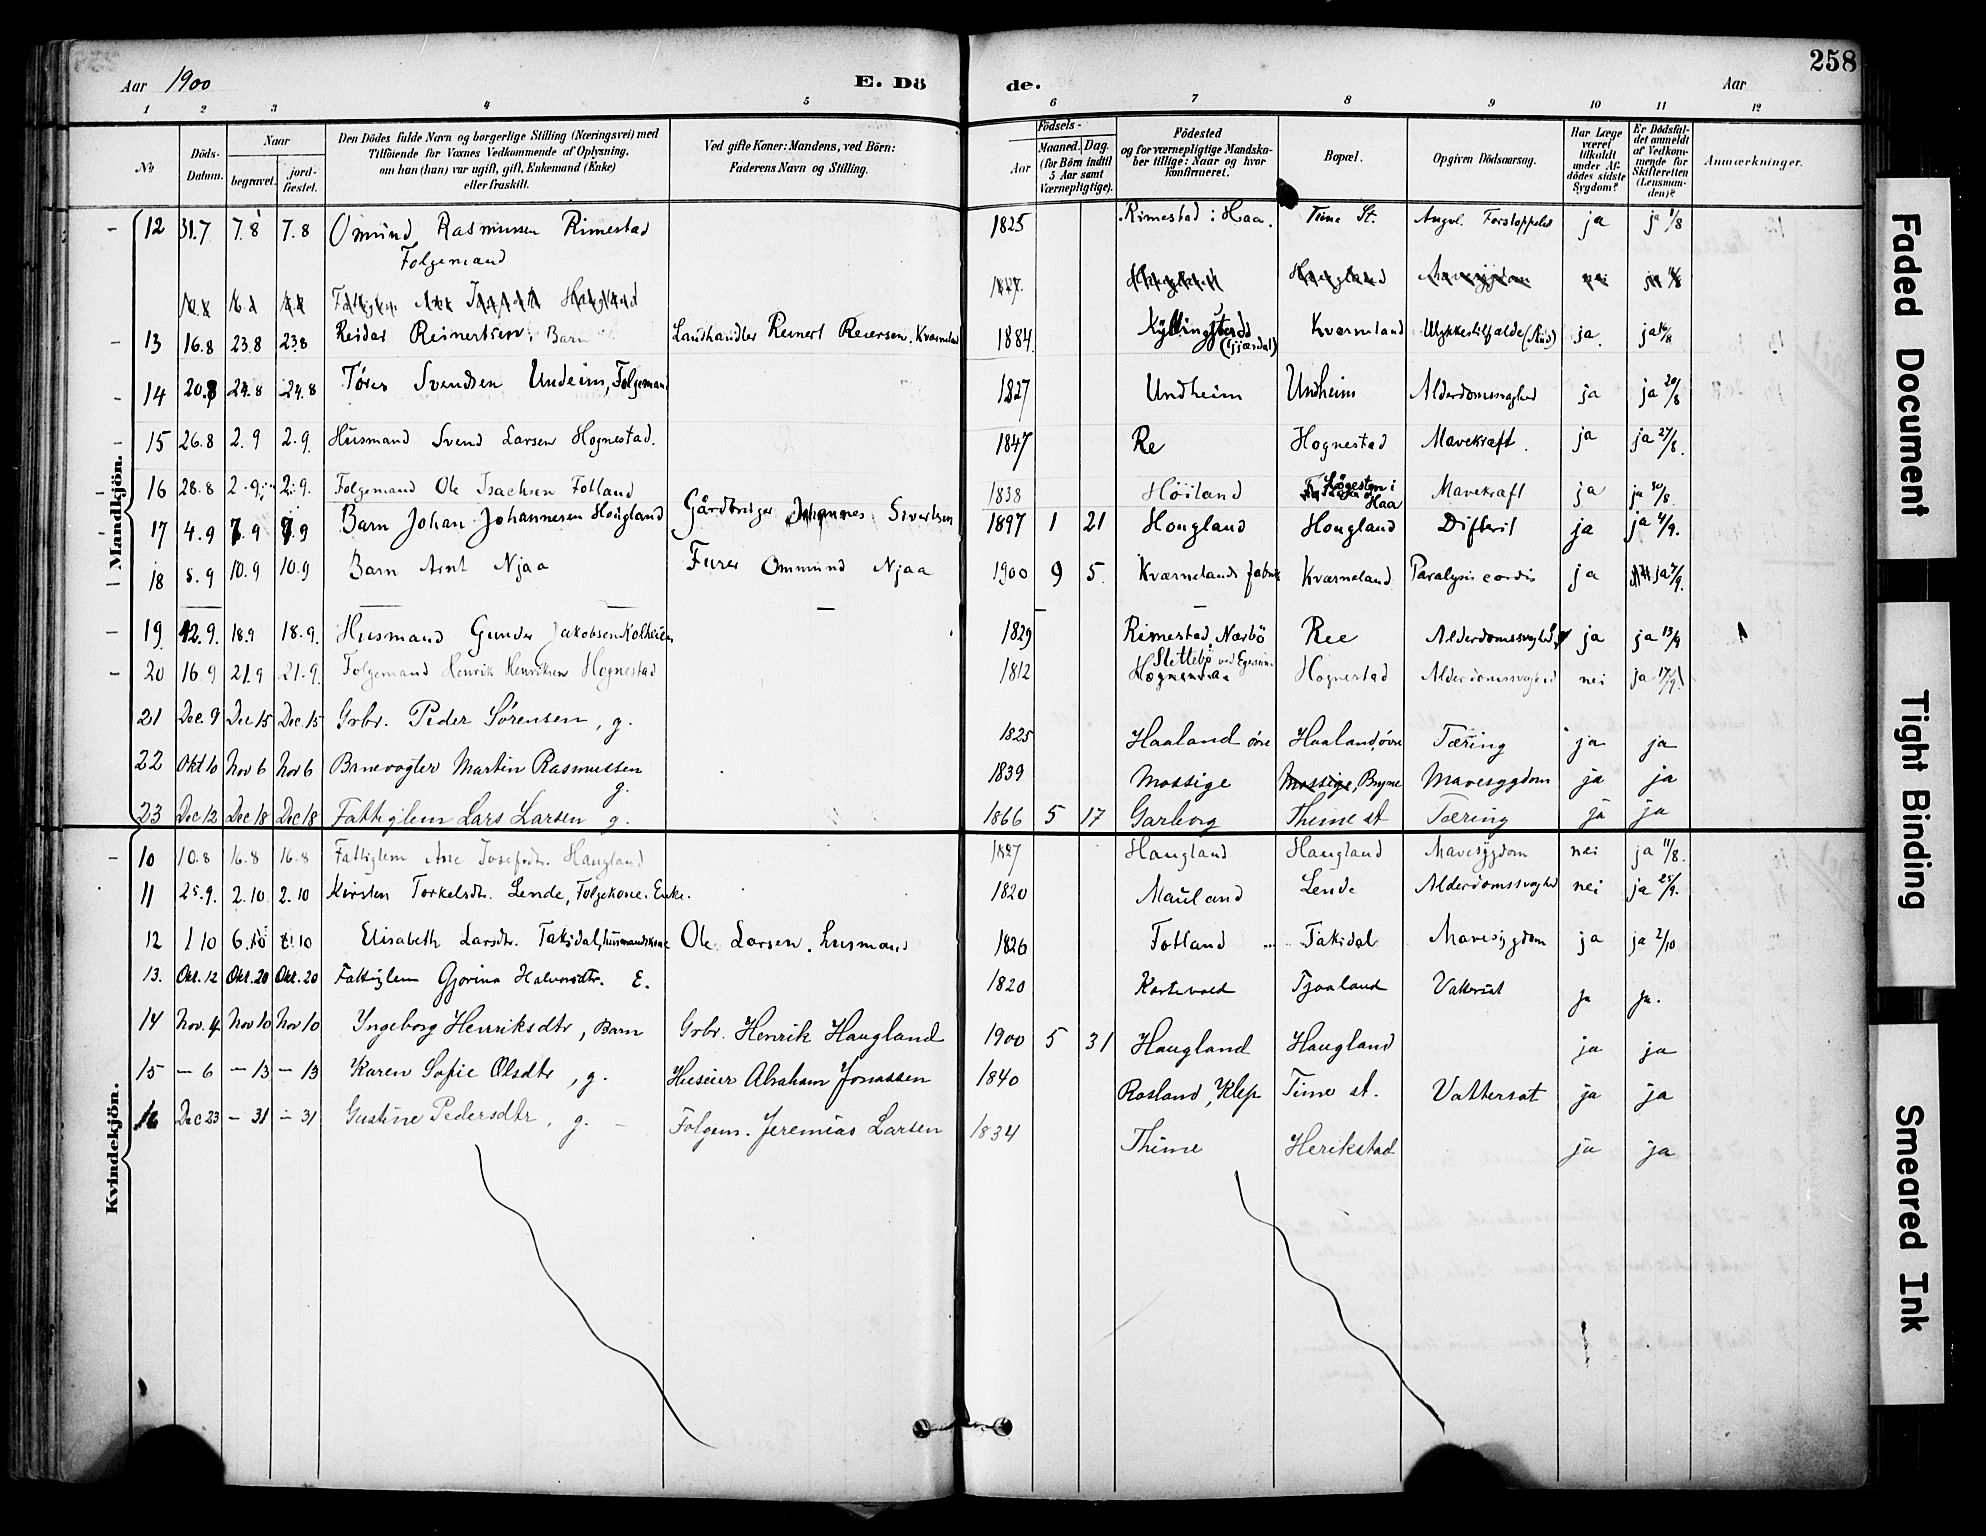 258
Aar 1900 E. Dö de. Aar
1 2 3 4 5 6 7 8 9 10 11 12
No Döds-Datum. Naar begravet. jord-fæstet. Den Dödes fulde Navn og borgerlige Stilling (Næringsvei) med Tilföiende for Voxnes Vedkommende af Oplysning, om han (hun) var ugift, gift, Enkemand (Enke) eller fraskilt. Ved gifte Koner: Mandens, ved Börn: Faderens Navn og Stilling. Födsels- Aar Maaned. Dag. (for Börn indtil 5 Aar samt Værnepligtige). Födested og for værnepligtige Mandskaber tillige: Naar og hvor konfirmeret. Bopæl. Opgiven Dödsaarsag. Har Læge været tilkaldt under Afdödes sidste Sygdom? Er Dödsfaldet anmeldt af Vedkommende for Skifteretten (Lensmanden)? Anmærkninger.
Mandkjön.
12 31.7 7.8 7.8 Omund Rasmussen Rimestad Folgemand 1825 Rimestad i Haa. Time St. Angvl. Forstoppelse ja ja 1/8
13 16.8 23.8 23.8 Reidar Reinertsen, Barn Landhandler Reinert Reiersen, Kværneland 1884 (Gjæsdal) Kværneland Ulykkestilfælde ja. ja 16/8
14 20.8 24.8 24.8 Törer Svendsen Undeim, Folgemand 1827 Undheim Undheim Alderdomssvaghed ja ja 20/8
15 26.8 2.9 2.9. Husmand Svend Larsen Hognestad. 1847 Re Hognestad Mavekræft. ja ja 27/8.
16 28.8 2.9. 2.9. Folgemand Ole Isachsen Fotland 1838 Höiland i Haa Mavekræft ja ja 30/8.
17 4.9 7.9 9.9 Barn Johan Johannesen Hougland Gårdbruger Johannes Sivertsen 1897 1 21 Hougland Hougland Difterit ja ja 4/9.
18 5.9 10.9 10.9 Barn Arnt Njaa Furer Ommund Njaa 1900 9 5. Kværnelands fabrik Kværneland Paralysis cordis ja ja 7/9.
19 12.9. 18.9 18.9. Husmand Gunder Jakobsen Kolheien 1829 Rimestad, Nærbö Ree Alderdomssvaghed ja ja 13/9
20 16.9 21.9 21.9. Folgemand Henrik Henriksen Hognestad 1812 Slettebö ved Egersund Hognestad Alderdomssvaghed nei ja 17/9.
21 Dec. 9 Dec 15 Dec. 15 Grbr. Peder Sörensen, g. 1825 Haaland övre Haaland, övre Tæring ja ja
22 Okt 10 Nov 6 Nov 6 Banevogter Martin Rasmussen g. 1839 Mossige Mossige, Bryne Mavesygdom ja ja
23 Dec 12 Dec 18 Dec 18 Fattiglem Lars Larsen g. 1866 5 17 Garborg Thime st Tæring ja ja
Kvindekjön.
10 10.8 16.8 16.8 Fattiglem Ane Josefsdtr. Haugland 1827 Haugland Haugland Mavesygdom nei ja 11/8.
11 25.9. 2.10 2.10 Kirsten Torkelsdtr. Lende, Folgekone. Enke. 1820 Mauland Lende Alderdomssvaghed nei ja 25/9.
12 1 10 6.10 6.10 Elisabeth Larsdtr. Taksdal, husmandskone Ole Larsen, husmand 1826 Fotland Taksdal Mavesygdom ja ja 2/10
13. Okt. 12 Okt. 20 Okt. 20 Fattiglem Gjorina Halvorsdtr. E. 1820 Kartevold Tjaaland Vattersot ja ja.
14 Nov. 4 Nov 10 Nov 10 Yngeborg Henriksdtr, Barn Grbr. Henrik Haugland 1900 5 31 Haugland Haugland ja ja
15 — 6 — 13 — 13 Karen Sofie Olsdtr, g. Huseier Abraham Jonassen 1840 Rosland, Klep Time st. Vattersot ja ja
16 Dec 23 — 31 — 31 Gustine Pedersdtr, g. — Folgem. Jeremias Larsen 1834 Thime Herikstad ja ja
Faded Document
Tight Binding
Smeared Ink